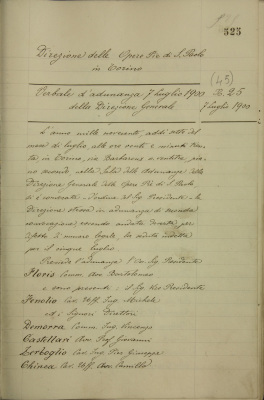 325
Direzione delle Opere Pie di S. Paolo
in Torino
(45)
Verbale d'adunanza 7 luglio 1900
N. 25
della Direzione Generale
7 luglio 1900
L'anno mille novecento, addì sette del
mese di luglio, alle ore venti e minuti
in Torino, via Barbaroux e
nella Sala delle adunanze della
Direzione Generale delle Opere Pie di S. Paolo
si è
Direzione stessa in adunanza di seconda
convocazione essendo andata deserta per
difetto di numero legale, la seduta indetta
per il cinque luglio.
Presiede l'adunanza il Sig. Presidente
Floris Comm. Avv. Bartolomeo
e sono presenti: il Sig. Vice Presidente
Fenolio Cav. Uff. Ing. Michele
ed i Signori Direttori
Demorra Comm. Ing. Vincenzo
Castellari Avv. Prof. Giovanni
Zerboglio Cav. Ing. Pier Giuseppe
Chinea Cav. Uff. Avv. Camillo